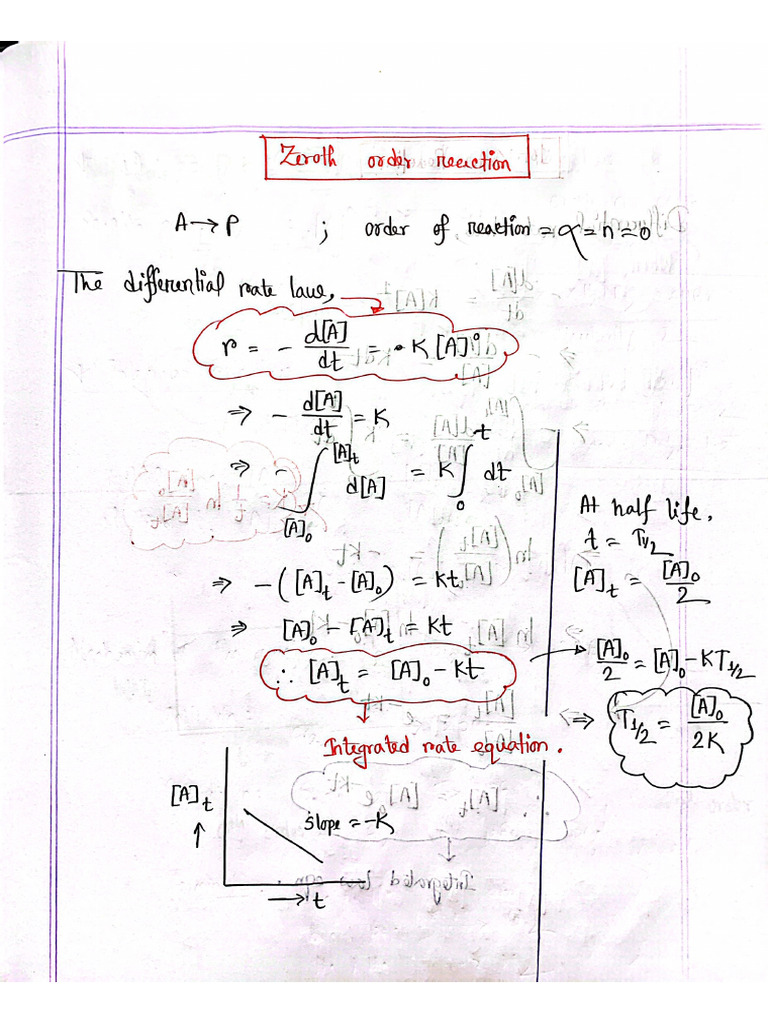 Zeroth order reaction
A → P ; order of reaction = α = n = 0
The differential rate law,
r = - d[A]/dt = K [A]⁰
⇒ - d[A]/dt = K
⇒ - ∫_{[A]₀}^{[A]t} d[A] = K ∫₀^t dt
⇒ - ([A]t - [A]₀) = Kt
⇒ [A]₀ - [A]t = Kt
∴ [A]t = [A]₀ - Kt
Integrated rate equation.
[A]t ↑
slope = -K
→ t
At half life,
t = T1/2
[A]t = [A]₀/2
[A]₀/2 = [A]₀ - KT1/2
⇒ T1/2 = [A]₀/2K